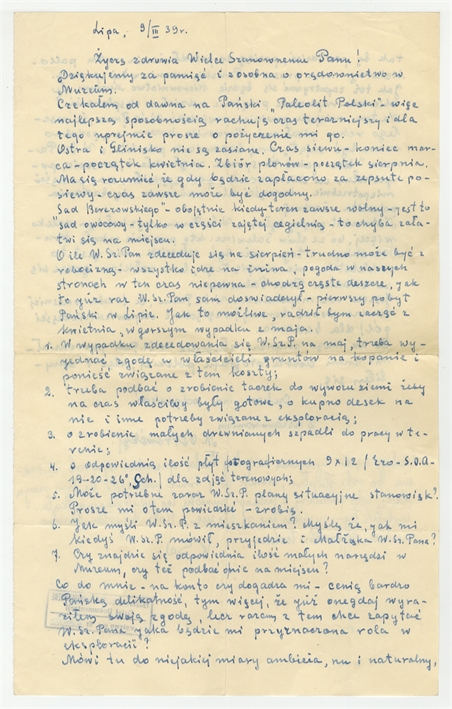 Lipa, 9/III 39r.
Życzę zdrowia Wielce Szanownemu Panu!
Dziękujemy za pamięć i zosobna o orędownictwo w
Muzeum.
Czekałem od dawna na Pański „Paleolit Polski" więc
najlepszą sposobnością rachują czas teraźniejszy i dla
tego uprejmie proszę o pożyczenie mi go.
Ostra i Glinisko nie są zasiane. Czas siewu - koniec mar-
ca - początek kwietnia. Zbiór plonów - początek sierpnia.
Ma się rozumieć że gdy będzie zapłacono za zepsute po-
siewy - czas zawsze może być dogodny.
"Sad Berezowskiego" - obojętnie kiedy - teren zawsze wolny - jest to
"sad owocowy - tylko w części zajętej cegielnią - to chyba zała-
twi się na miejscu.
O ile W.Sz.Pan zdecyduje się na sierpień - trudno może być z
robocizną - wszystko idzie na żniwa, pogoda w naszych
stronach w ten czas niepewna - chodzą częste deszcze, jak
to już raz W.Sz.Pan sam doświadczył - pierwszy pobyt
Pański w Lipie. Jak to możliwe, radził bym zacząć z
kwietnia, w gorszym wypadku z maja.
1. W wypadku zdecydowania się W.Sz.P. na maj, trzeba wy-
jednać zgodę u właścicieli gruntów na kopanie i
ponieść związane z tem koszty;
2. trzeba podbać o zrobienie taczek do wywozu ziemi żeby
na czas właściwy były gotowe, o kupno desek na
nie i inne potrzeby związane z eksploracją;
3. o zrobienie małych drewnianych szpadli do pracy w te-
renie;
4. o odpowiednią ilość płyt fotograficznych 9x12 /Ero-S.D.A-
19-20-26° Sch./ dla zdjęć terenowych;
5. Może potrzebne zaraz W.Sz.P. plany situacyjne stanowisk?
Proszę mi otem powiedzieć - zrobię.
6. Jak myśli W.Sz.P. z mieszkaniem? Myślę że, jak mi
kiedyś W.Sz.P. mówił, przyjedzie i Małżąka W.Sz.Pana?
7. Czy znajdzie się odpowiednia ilość małych narzędzi w
Muzeum, czy też podbać o nie na miejscu?
Co do mnie - na konto czy dogadza mi - cenię bardzo
Pańską delikatność, tym więcej, że już onegdaj wyra-
ziłem swoją zgodę, lecz zarazem z tem chcę zapytać
W.Sz.Pana jaka będzie mi przyznaczona rola w
eksploracji?
Mówi tu do niejakiej miary ambicja, nu i naturalny,